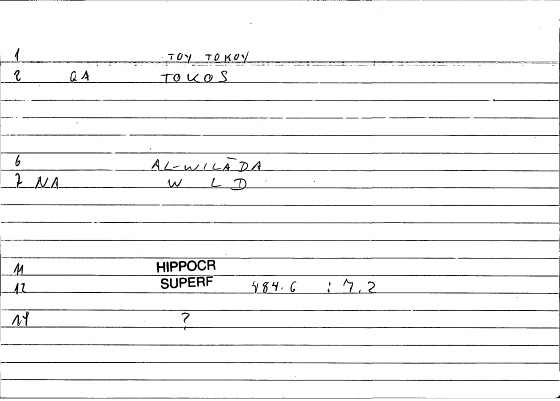 1 TOY TOKOY
2 QA TOKOS
6 AL-WILĀDA
7 NA W L D
11 HIPPOCR
12 SUPERF 484.6 : 7.2
14 ?